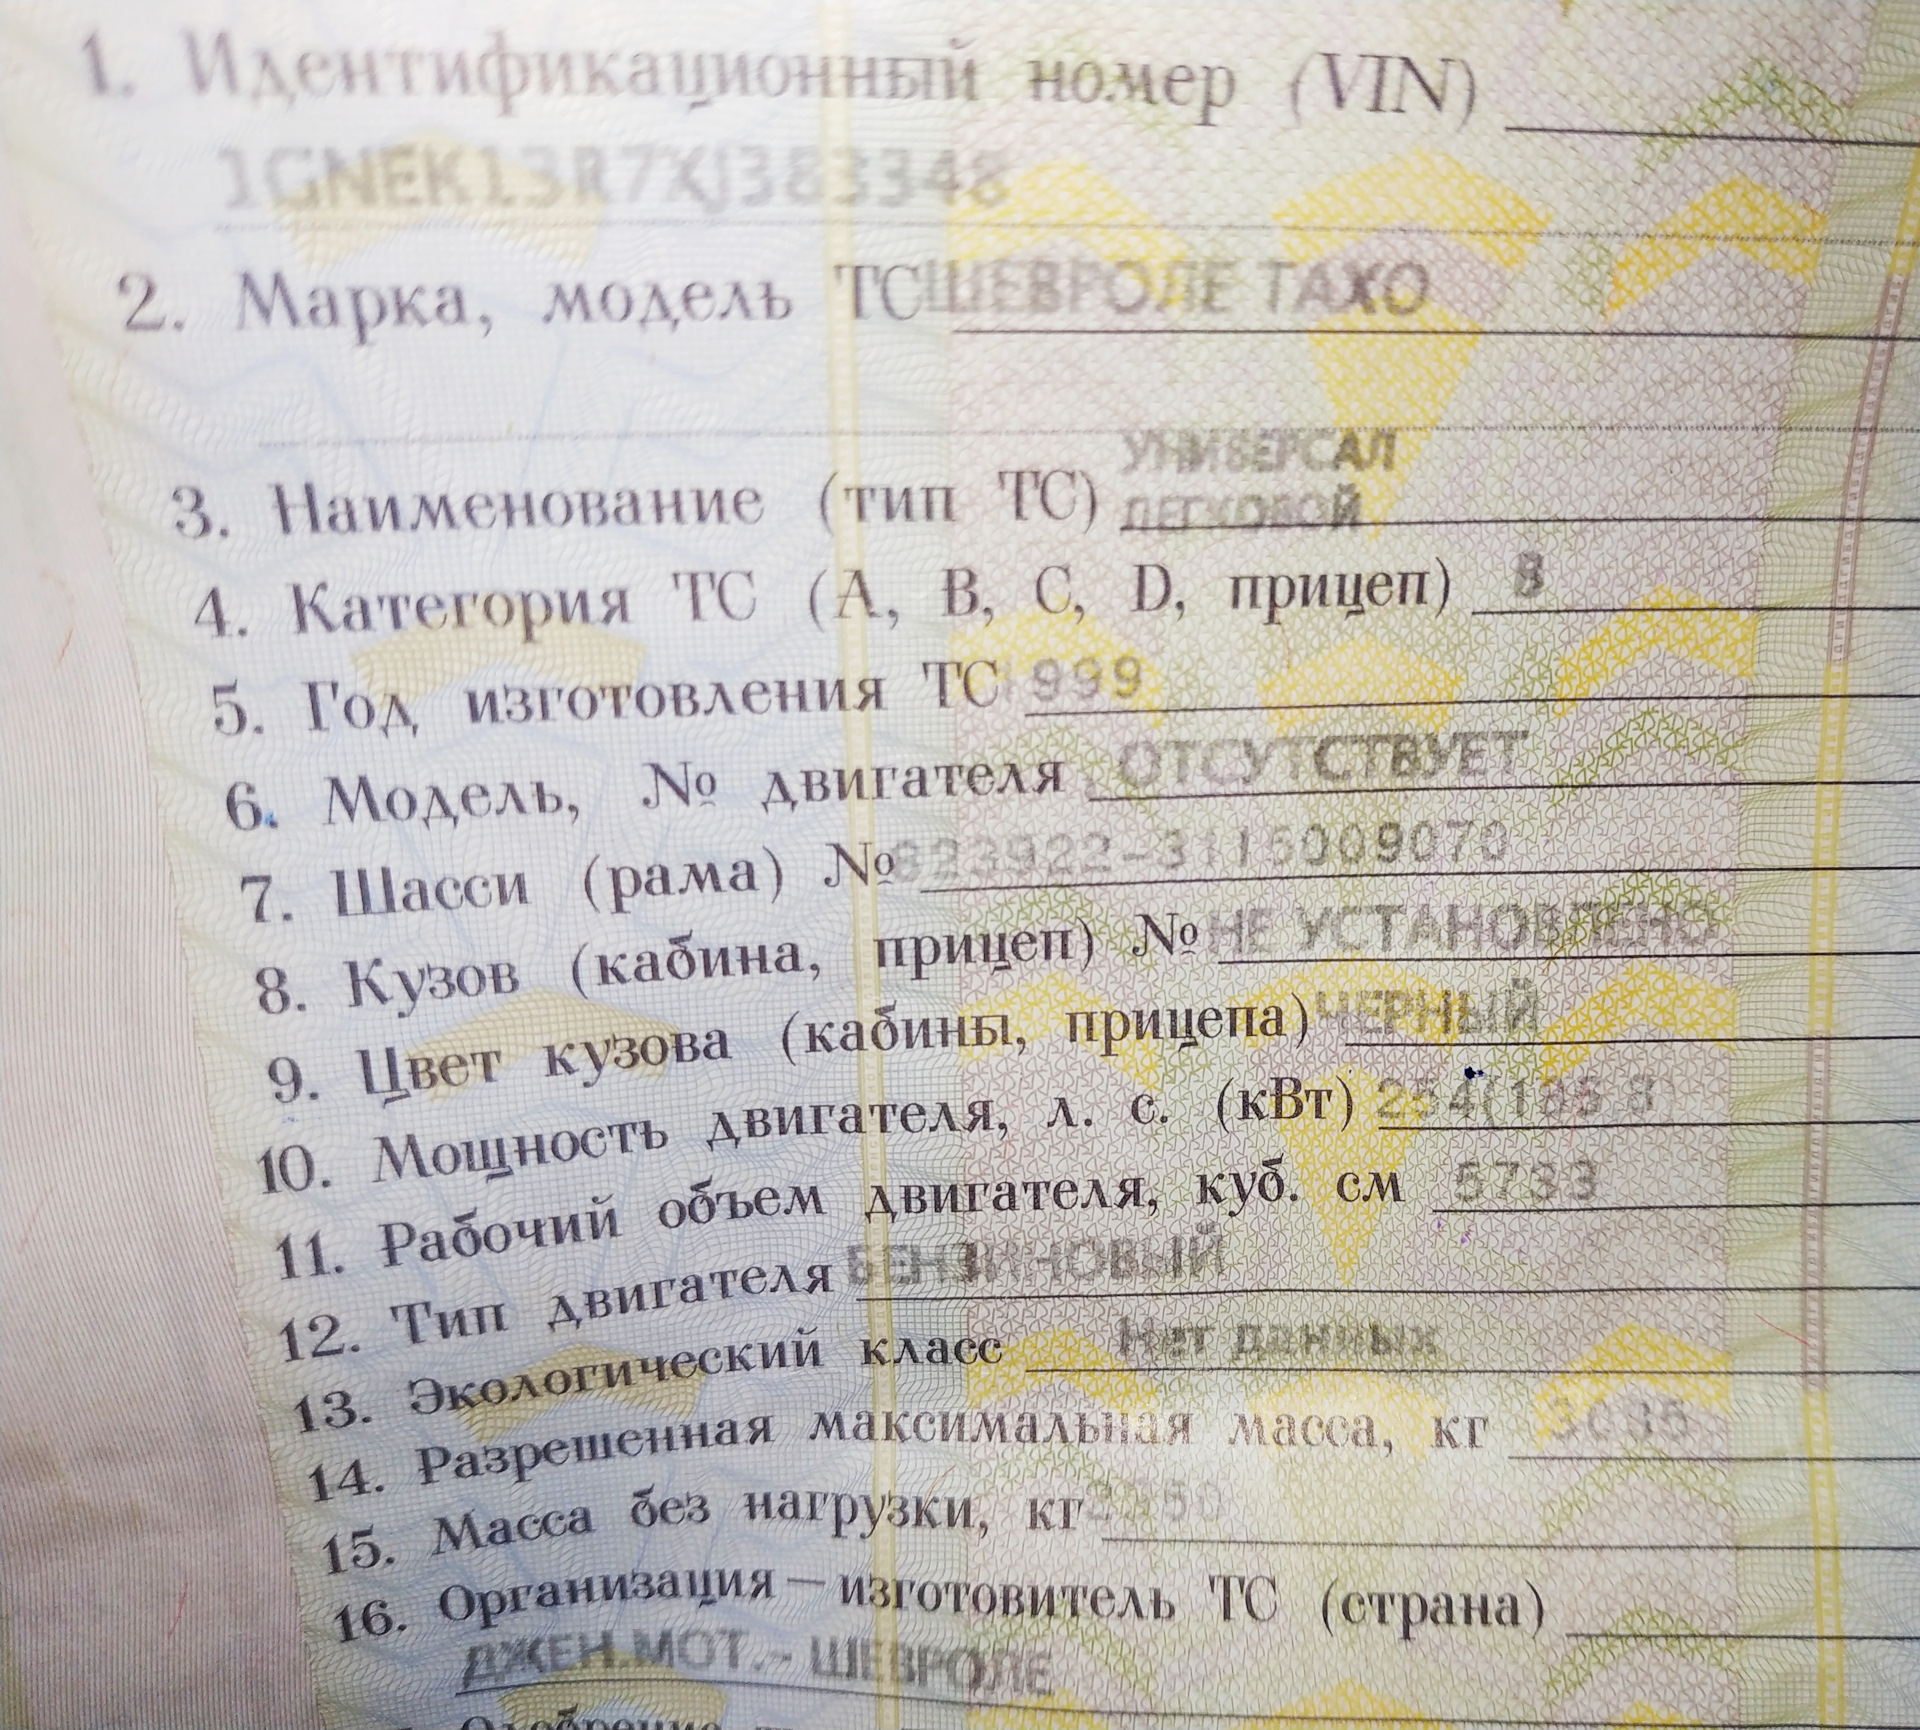 1. Идентификационный номер (VIN)
1GNEK13R7XJ383348
2. Марка, модель ТС ШЕВРОЛЕ ТАХО
УНИВЕРСАЛ
3. Наименование (тип ТС) ЛЕГКОВОЙ
4. Категория ТС (A, B, C, D, прицеп) B
5. Год изготовления ТС 1999
6. Модель, № двигателя ОТСУТСТВУЕТ
7. Шасси (рама) № 823922-3115009070
8. Кузов (кабина, прицеп) № НЕ УСТАНОВЛЕНО
9. Цвет кузова (кабины, прицепа) ЧЕРНЫЙ
10. Мощность двигателя, л. с. (кВт)
11. Рабочий объем двигателя, куб. см 5733
12. Тип двигателя БЕНЗИНОВЫЙ
13. Экологический класс Нет данных
14. Разрешенная максимальная масса, кг
15. Масса без нагрузки, кг
16. Организация — изготовитель ТС (страна)
ДЖЕН.МОТ.- ШЕВРОЛЕ